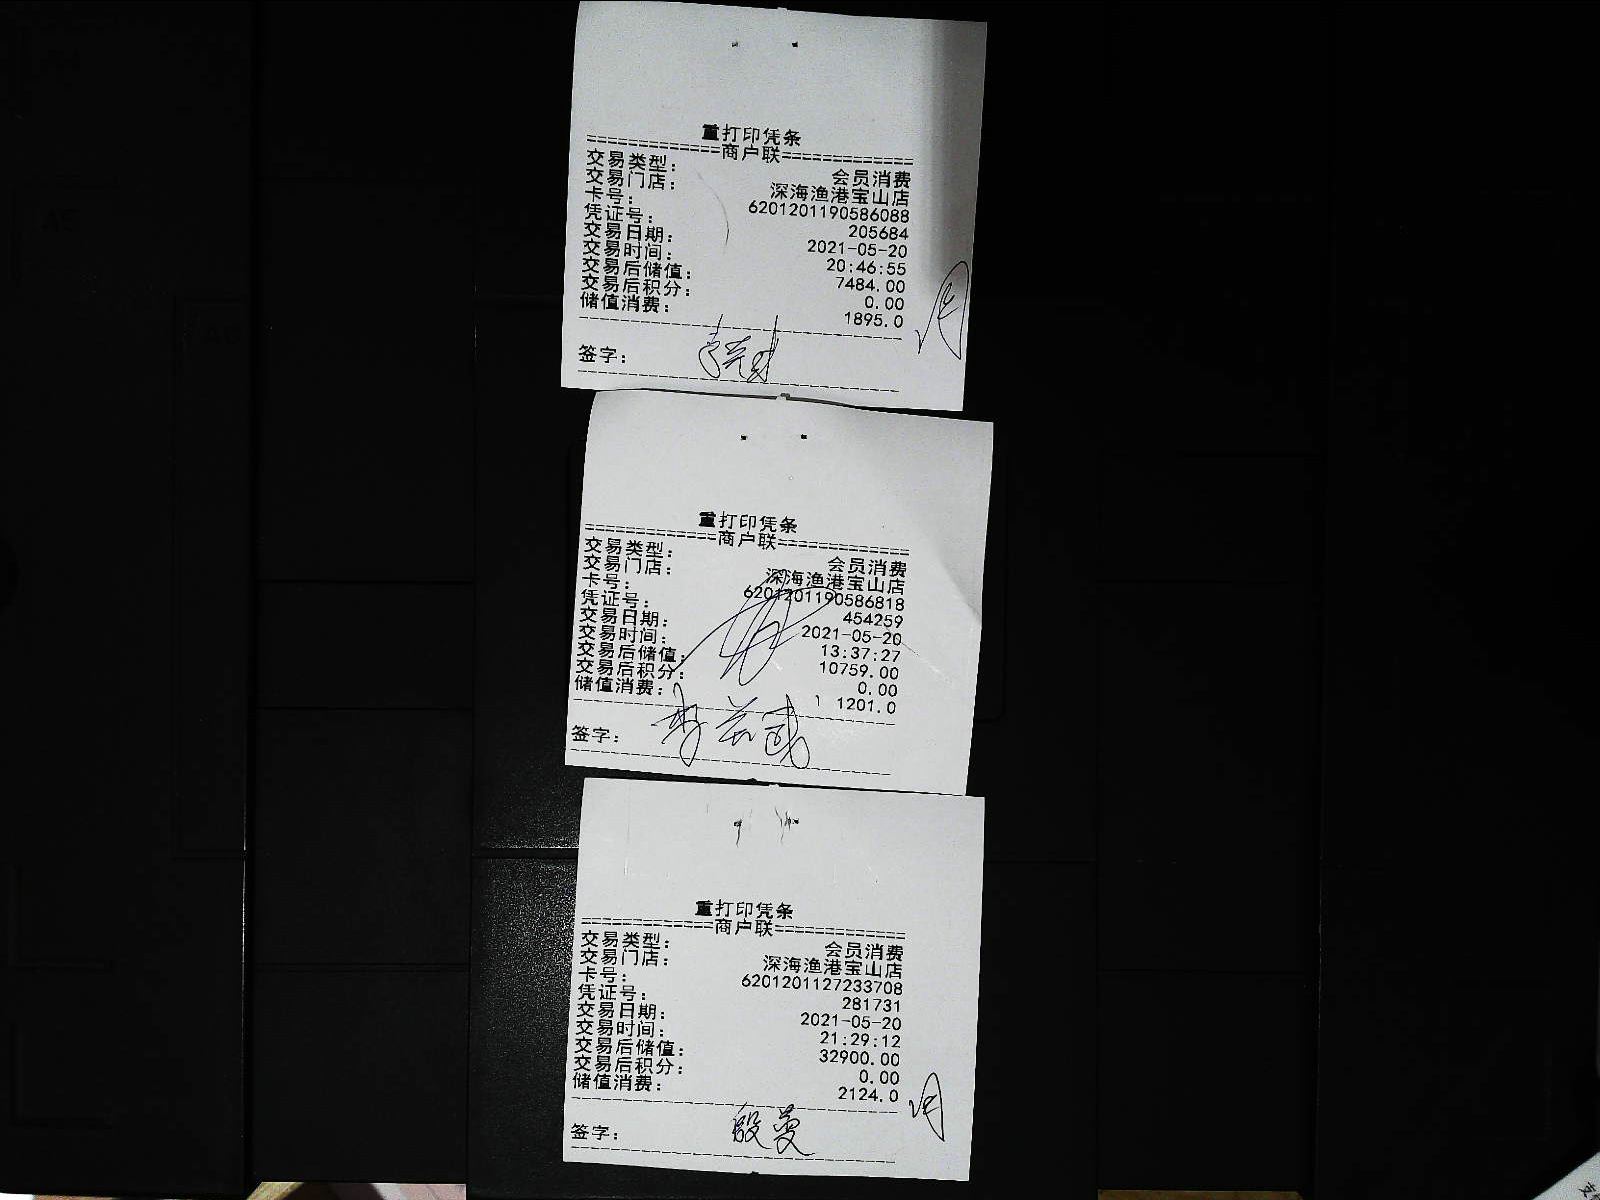 重打印凭条
=============商户联=============
交易类型: 会员消费
交易门店: 深海渔港宝山店
卡号: 6201201190586088
凭证号: 205684
交易日期: 2021-05-20
交易时间: 20:46:55
交易后储值: 7484.00
交易后积分: 0.00
储值消费: 1895.0
签字:
重打印凭条
=============商户联=============
交易类型: 会员消费
交易门店: 深海渔港宝山店
卡号: 6201201190586818
凭证号: 454259
交易日期: 2021-05-20
交易时间: 13:37:27
交易后储值: 10759.00
交易后积分: 0.00
储值消费: 1201.0
签字:
重打印凭条
=============商户联=============
交易类型: 会员消费
交易门店: 深海渔港宝山店
卡号: 6201201127233708
凭证号: 281731
交易日期: 2021-05-20
交易时间: 21:29:12
交易后储值: 32900.00
交易后积分: 0.00
储值消费: 2124.0
签字: 殷蔓